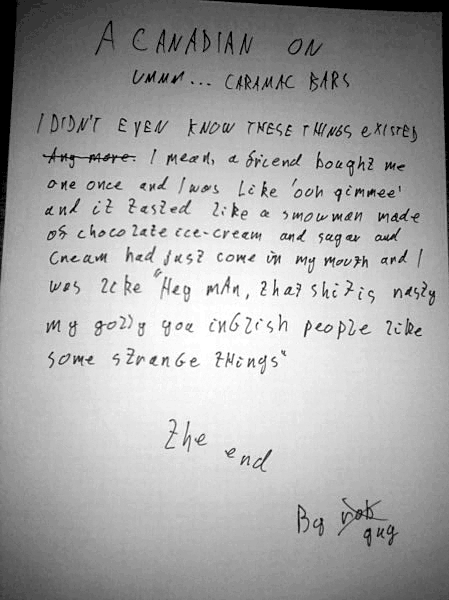 A CANADIAN ON
UMMM... CARAMAC BARS
I DIDN'T EVEN KNOW THESE THINGS EXISTED
Any more. I mean, a friend bought me
one once and I was like 'ooh gimmee'
and it tasted like a snowman made
of chocolate ice-cream and sugar and
cream had just come in my mouth and I
was like "Hey mAn, that shit is nasty
my golly you inGlish people like
some strange things"
the end
By
guy